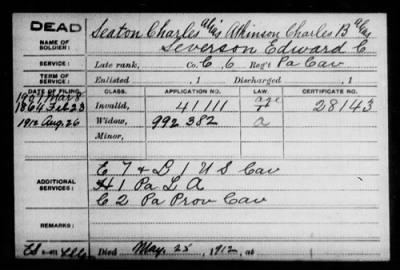 DEAD
NAME OF SOLDIER: Seaton Charles alias Atkinson Charles B alias
Severson Edward C
SERVICE: Late rank, Co. C, 6 Reg't Pa Cav
TERM OF SERVICE: Enlisted , 1 Discharged , 1
DATE OF FILING. CLASS. APPLICATION NO. LAW. CERTIFICATE NO.
1907 Mar 8 age
1864 Feb 23 Invalid, 41111 28143
1912 Aug. 26 Widow, 992382 a
Minor,
ADDITIONAL SERVICES: E 7 & D 1 U S Cav
H 1 Pa L A
C 2 Pa Prov Cav
REMARKS:
Died May 25, 1912, at